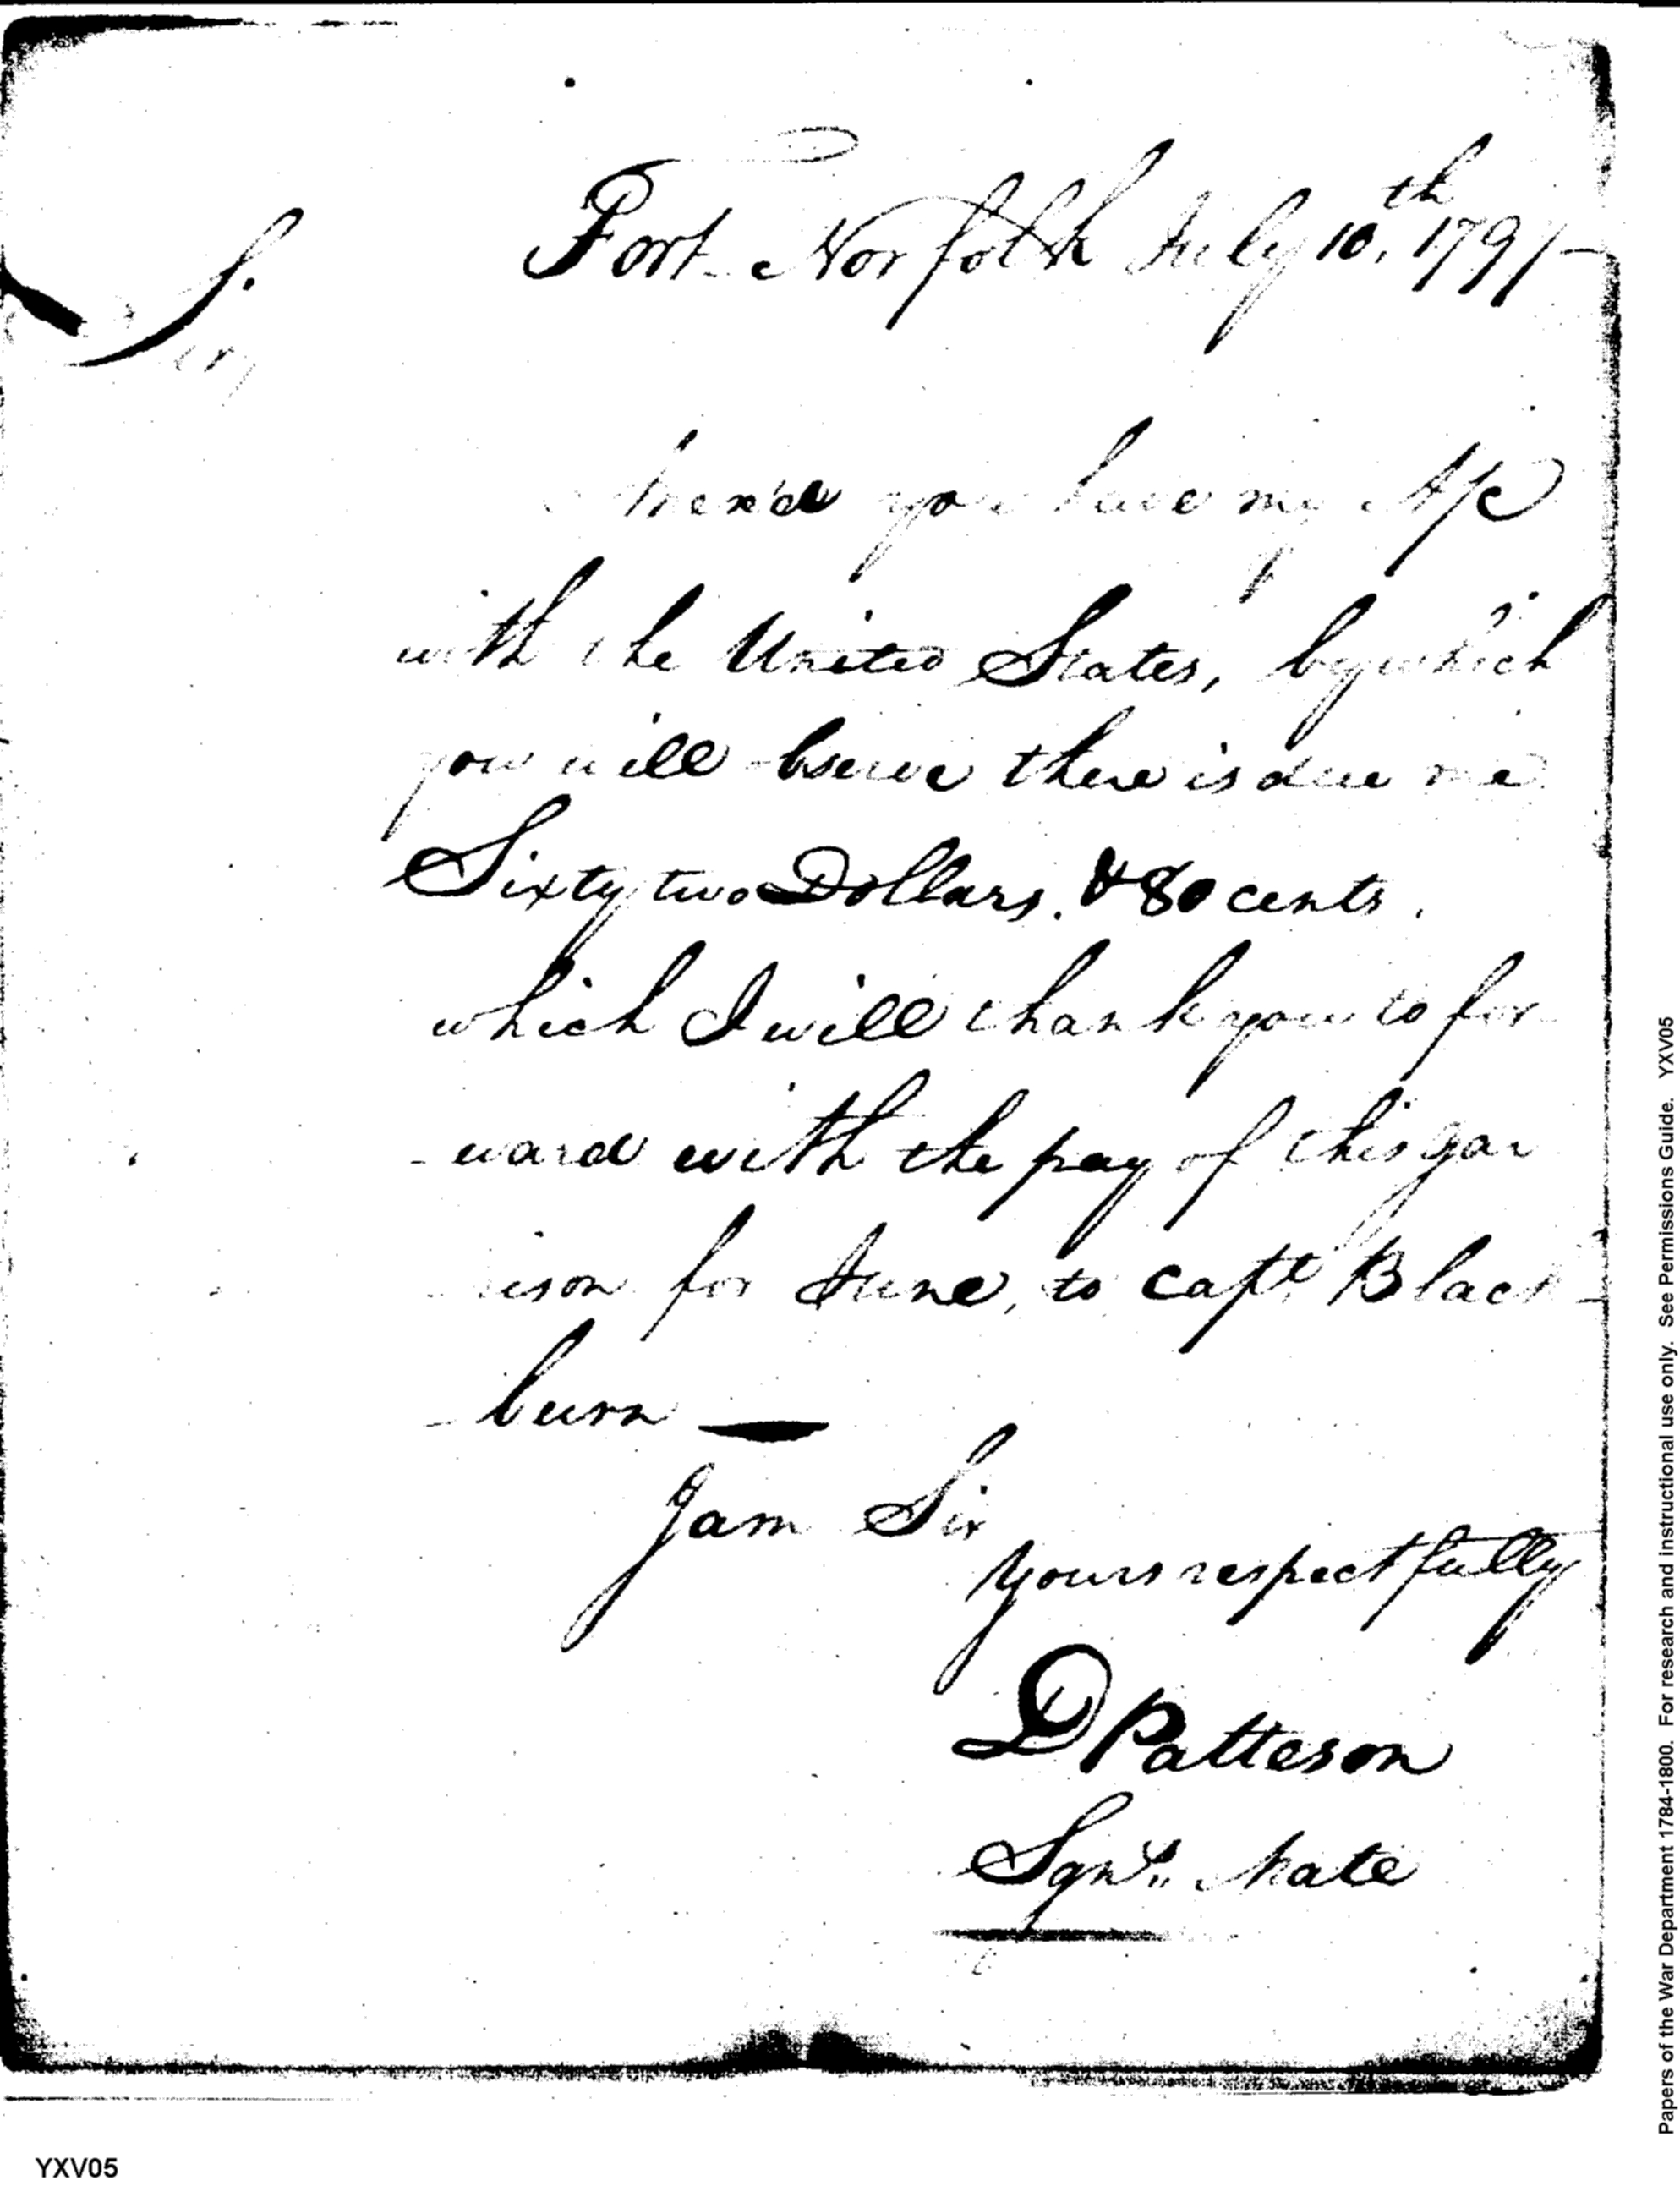 Fort Norfolk July 10th, 1797
Sir,
Annex'd you have my A/c
with the United States, by which
you will observe there is due me
Sixty two Dollars. & 80 cents.
which I will thank you to for-
-ward with the pay of this gar
-rison for June, to Capt. Black-
-burn —
I am Sir
yours respectfully
D Patteson
Sgns. Mate
YXV05
Papers of the War Department 1784-1800. For research and instructional use only. See Permissions Guide. YXV05